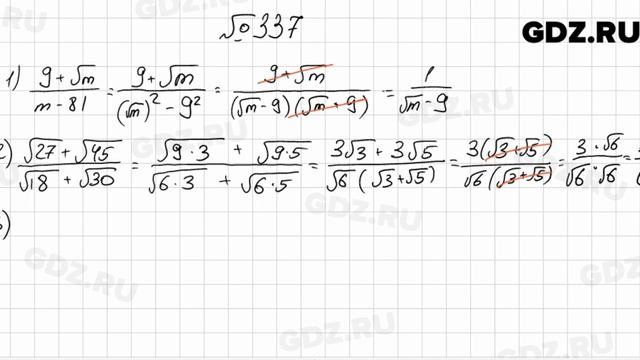 GDZ.RU
№337
1) (9+√m)/(m-81) = (9+√m)/((√m)²-9²) = (9+√m)/((√m-9)(√m+9)) = 1/(√m-9)
2) (√27+√45)/(√18+√30) = (√9·3 + √9·5)/(√6·3 + √6·5) = (3√3+3√5)/(√6(√3+√5)) = (3(√3+√5))/(√6(√3+√5)) = (3·√6)/(√6·√6) =
GDZ.RU
GDZ.RU
GDZ.RU
GDZ.RU
GDZ.RU
GDZ.RU